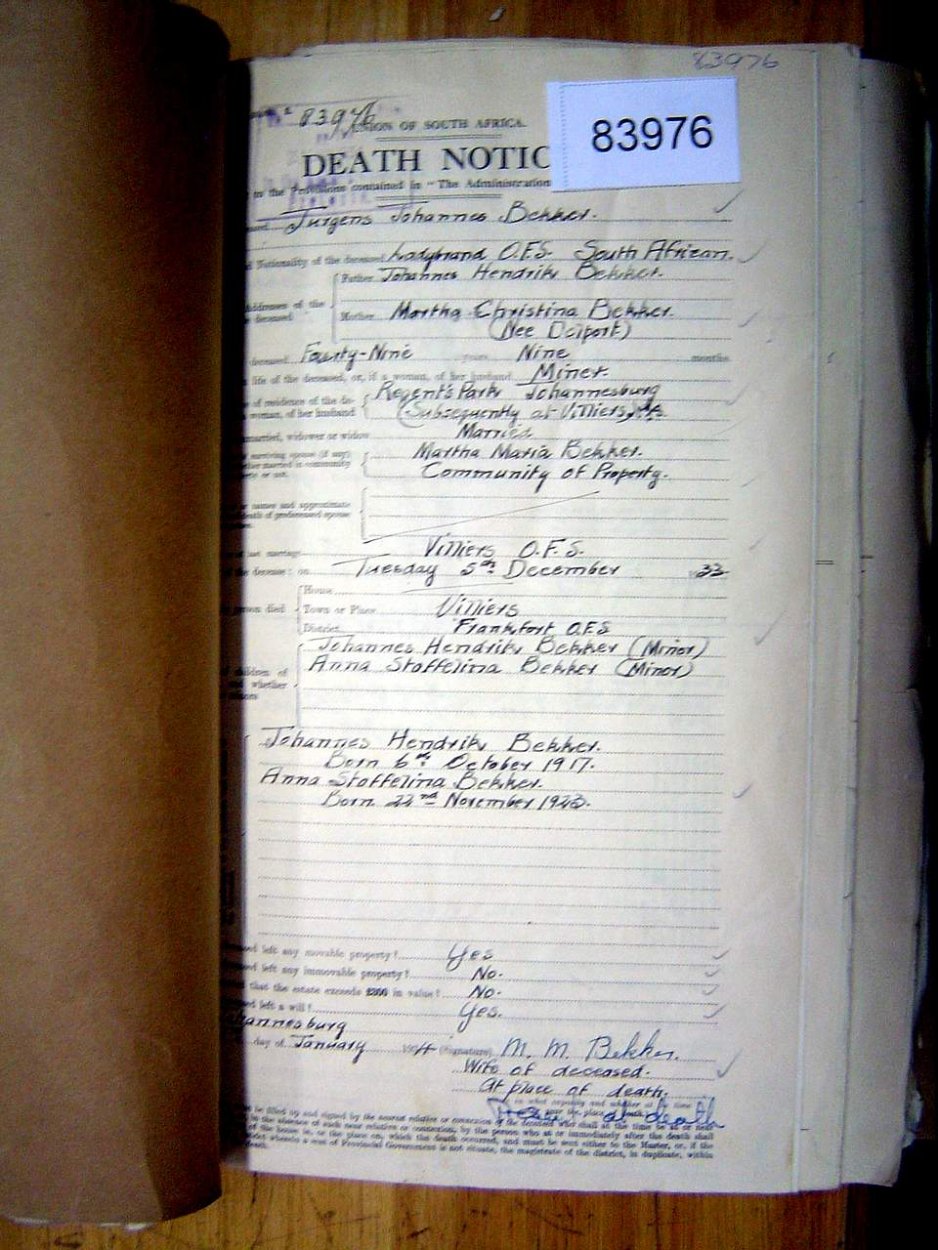 83976
83976
83976
UNION OF SOUTH AFRICA.
DEATH NOTIC
to the Provisions contained in "The Administration
Jurgens Johannes Bekker.
Nationality of the deceased Ladybrand O.F.S. South African.
Father Johannes Hendrik Bekker.
Addresses of the
deceased
Mother Martha Christina Bekker.
(Nee Delport)
deceased Fourty-Nine years Nine months
life of the deceased, or, if a woman, of her husband Miner.
of residence of the de-
woman, of her husband
Regent's Park Johannesburg
(Subsequently at Villiers
married, widower or widow Married
surviving spouse (if any)
married in community
or not.
Martha Maria Bekker.
Community of Property.
names and approximate
death of predeceased spouse
Villiers O.F.S.
the decease: on Tuesday 5th December 33
House
person died
Town or Place Villiers
District Frankfort O.F.S
Johannes Hendrik Bekker (Minor)
children of
whether
minors
Anna Stoffelina Bekker (Minor)
Johannes Hendrik Bekker.
Born 6th October 1917.
Anna Stoffelina Bekker.
Born 22nd November 1923.
left any movable property? Yes
left any immovable property? No.
that the estate exceeds £300 in value? No.
left a will? Yes.
annesburg
day of January 1934 (Signature) M. M. Bekker.
Wife of deceased.
At place of death.
at death
be filled up and signed by the nearest relative or connection of the deceased who shall at the time be at or near
in the absence of such near relative or connection, by the person who at or immediately after the death shall
of the house in, or the place on, which the death occurred, and must be sent either to the Master, or, if the
district wherein a seat of Provincial Government is not situate, the magistrate of the district, in duplicate, within